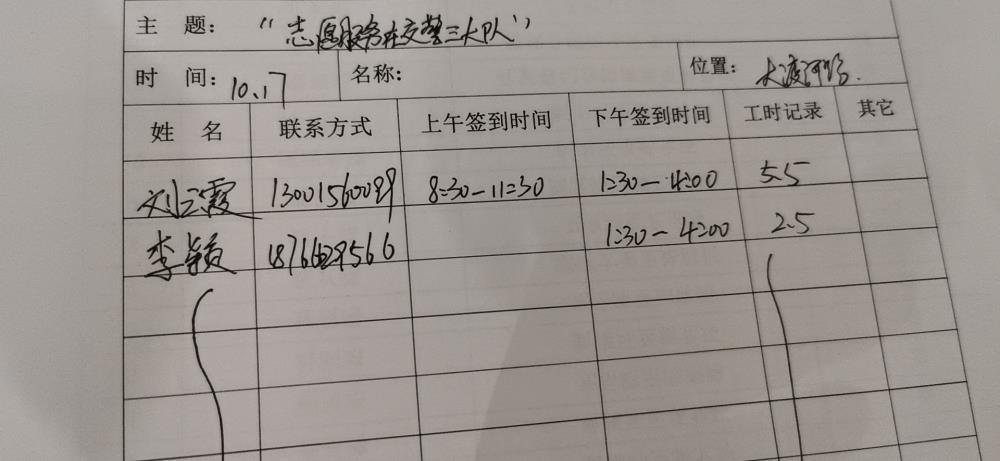 主 题: “志愿服务在交警三大队”
时 间: 10.17 名称: 位置: 大渡河路.
姓 名 联系方式 上午签到时间 下午签到时间 工时记录 其它
刘云霞 13001560099 8:30-11:30 1:30-4:00 5.5
李颖 1876629566 1:30-4:00 2.5